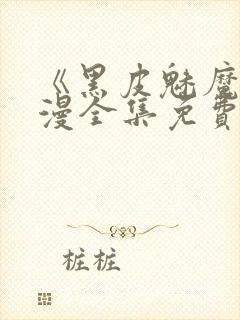 《黑皮魅魔
漫全集免費
桩桩